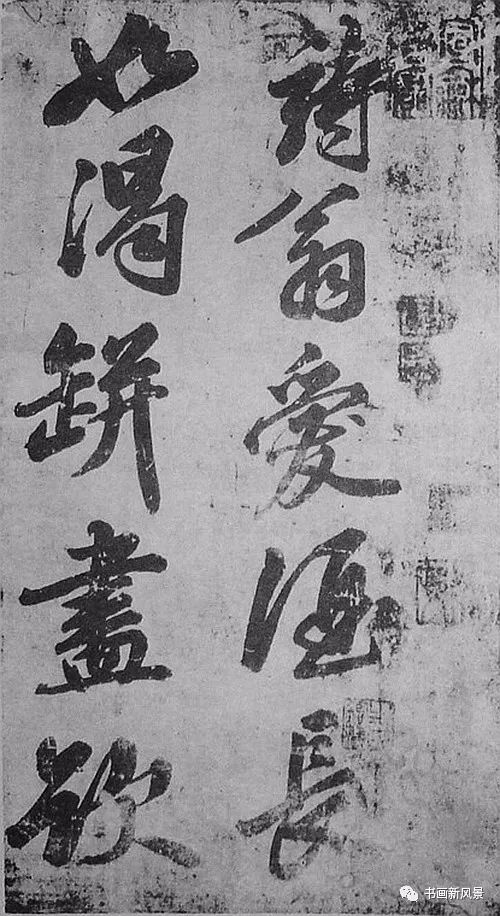 詩翁愛酒長
如渴缾盡欲
书画新风景